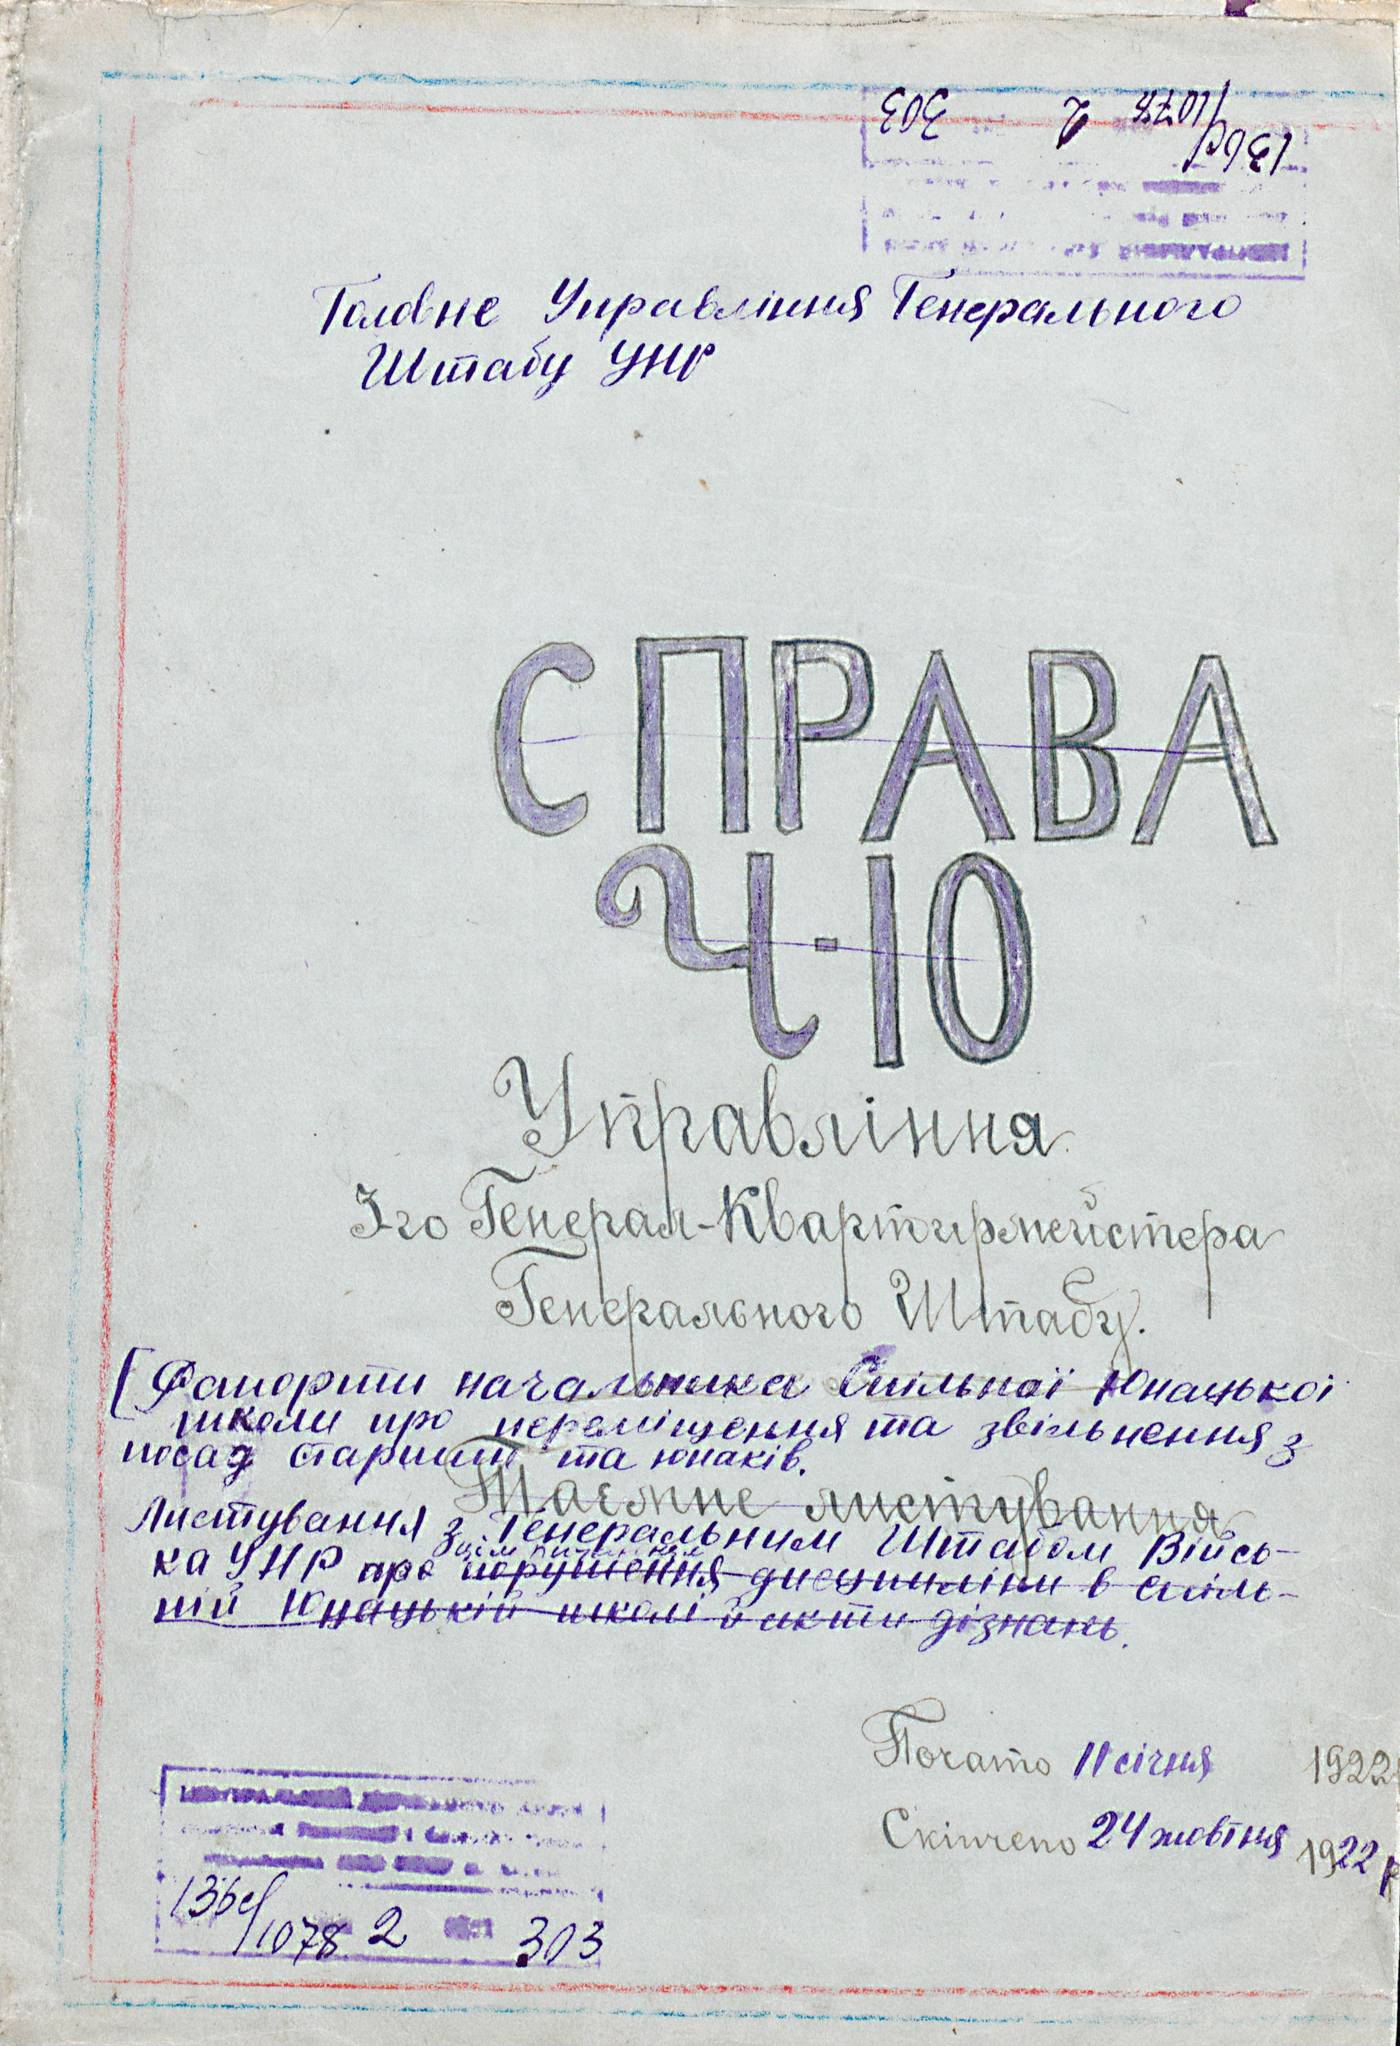 136с/1078 2 303
Головне Управління Генерального
Штабу УНР
СПРАВА
Ч-10
Управління
3-го Генерал-Квартирмейстера
Генерального Штабу.
[Рапорти начальника Спільної Юнацької
школи про переміщення та звільнення з
посад старшин та юнаків.
Таємне листування
Листування з Генеральним Штабом Війсь-
ка УНР про порушення дисципліни в спіль-
ній Юнацькій школі й акти дізнань.
Почато 11 січня 1922
Скінчено 24 жовтня 1922 р
ЦЕНТРАЛЬНИЙ
136с/1078 2 303